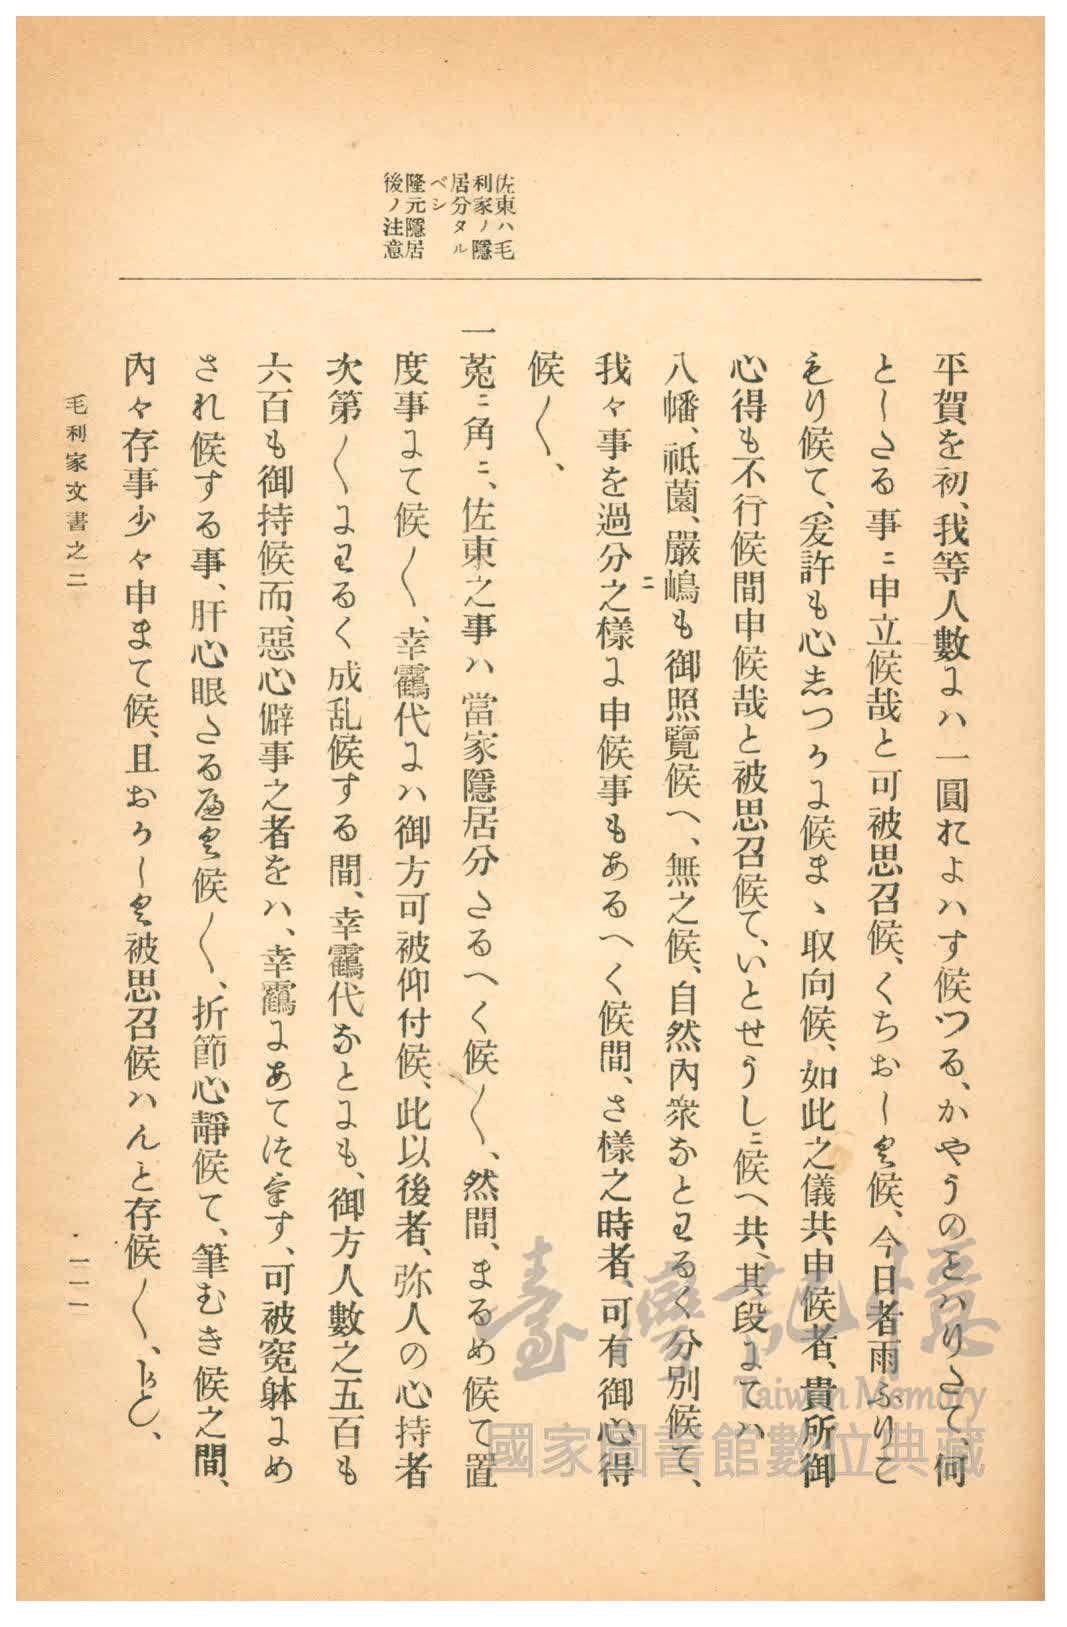 佐東ハ毛
利家ノ隱
居分タル
ベシ
隆元隱居
後ノ注意
平賀を初、我等人數よハ一圓れよハす候つる、かやうのことハりさて、何
としたる事ニ申立候哉と可被思召候、くちおしく候、今日者雨ふりこ
もり候て、爰許も心しつかよ候まゝ取向候、如此之儀共申候者、貴所御
心得も不行候間申候哉と被思召候て、いとせうしニ候へ共、其段よてハ
八幡、祇薗、嚴嶋も御照覽候へ、無之候、自然內衆なとわるく分別候て、
我々事を過分之樣ニよ申候事もあるへく候間、さ樣之時者、可有御心得
候〳〵、
一菟ニ角ニ、佐東之事ハ當家隱居分たるへく候〳〵、然間、まるめ候て置
度事よて候〳〵、幸靏代よハ御方可被仰付候、此以後者、弥人の心持者
次第〳〵よわるく成乱候する間、幸靏代なとよも、御方人數之五百も
六百も御持候而、惡心僻事之者をハ、幸靏よあてつけす、可被寃躰よめ
され候する事、肝心眼たるへく候〳〵、折節心靜候て、筆むき候之間、
內々存事少々申まて候、且おかしく被思召候ハんと存候〳〵、かしく、
毛利家文書之二
一一一
臺灣記憶
Taiwan Memory
國家圖書館數位典藏